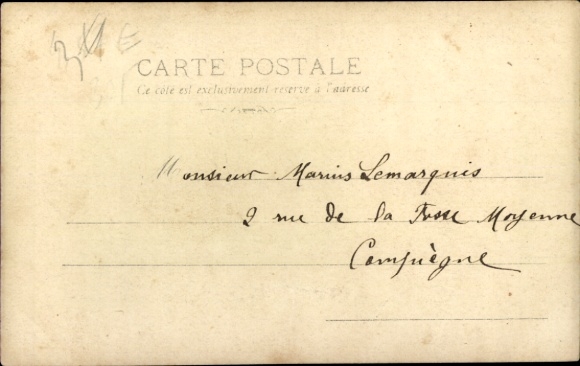 CARTE POSTALE
Ce côté est exclusivement réservé à l'adresse
Monsieur Marius Lemarquis
2 rue de la Fosse Moyenne
Compiègne